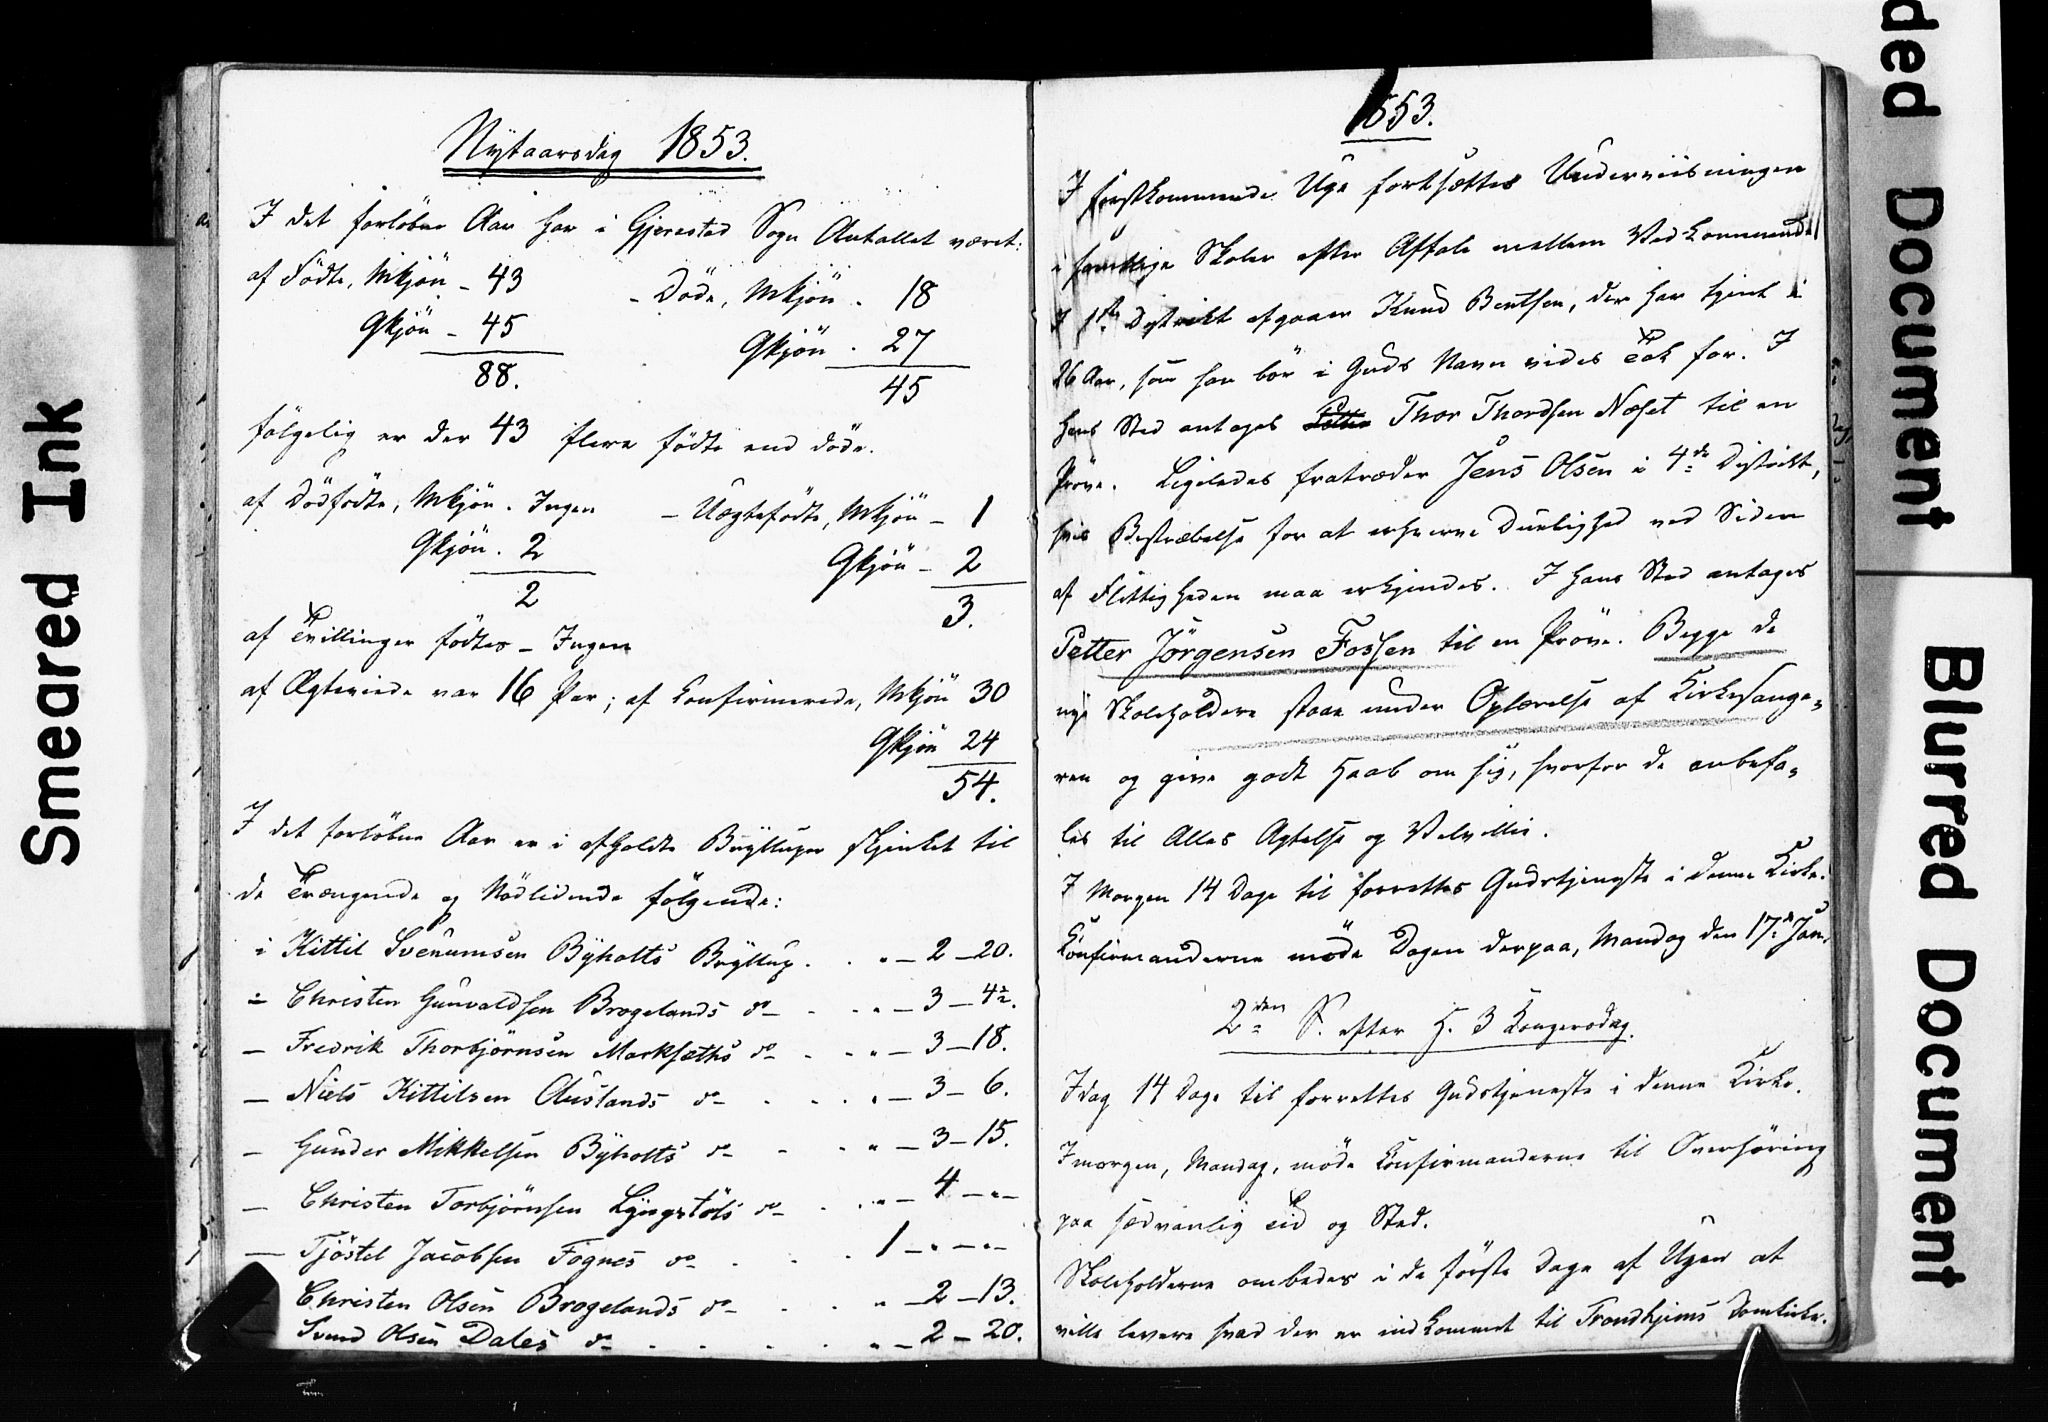 Nÿtaarsdag 1853.
I det forløbne Aar har i Gjerestad Sogn Antallet været:
af Födte, Mkjön - 43 - Döde, Mkjön - 18
Qkjön - 45 Qkjön - 27
88. 45
fölgelig er der 43 flere födte end döde.
af Dödfödte, Mkjön - Ingen - Uægtefödte, Mkjön - 1
Qkjön - 2 Qkjön - 2
2 3.
af Tvillinger födtes - Ingen
af Ægteviede var 16 Par; af Confirmerede, Mkjön 30
Qkjön 24
54.
I det forløbne Aar er i afholdte Brÿlluper skjenket til
de Trængende og Nödlidende følgende:
i Kittil Svenumsen Bÿholts Brÿllup . . " - 2 - 20.
i Christen Gunvaldsen Brogelands do - . . " - 3 - 4½.
- Fredrik Thorbjörnsen Marksæths do - . . " - 3 - 18.
- Niels Kittilsen Auslands do - . . . " - 3 - 6.
- Gunder Mikkelsen Bÿholts do - . . " - 3 - 15.
- Christen Torbjörnsen Lÿngstöls do - . . " - 4 - " -
- Tjöstel Jacobsen Fognes do - . . . 1 - " - " -
- Christen Olsen Brogelands do - . . " - 2 - 13.
Svend Olsen Dales do - . . . . " - 2 - 20.
1853.
I førstkommende Uge fortsættes Underviisningen
i samtlige Skoler efter Aftale mellem Vedkommende
I 1ste Distrikt afgaaer Knud Bentsen, der har tjent i
26 Aar, som han bör i Guds Navn vides Tak for. I
hans Sted antages Petter Thor Thordsen Næset til en
Pröve. Ligeledes fratræder Jens Olsen i 4de Distrikt,
hvis Bestræbelse for at erhverve Duelighed ved Siden
af Flittigheden maa erkjendes. I hans Sted antages
Petter Jörgensen Fossen til en Pröve. Begge de
nye Skoleholdere staae under Oplærelse af Kirkesange-
ren og give godt Haab om sig, hvorfor de anbefa-
les til Alles Agtelse og Velvillie.
I Morgen 14 Dage til forrettes Gudstjeneste i denne Kirke.
Confirmanderne möde Dagen derpaa, Mandag den 17de Jan.
2den S. efter H. 3 Kongersdag.
Idag 14 Dage til forrettes Gudstjeneste i denne Kirke.
Imorgen, Mandag, möde Confirmanderne til Overhöring
paa sædvanlig Tid og Sted.
Skoleholderne ombedes i de förste Dage af Ugen at
ville levere hvad der er indkommet til Trondhjems Domkirke.
Smeared Ink
ded Document
Blurred Document